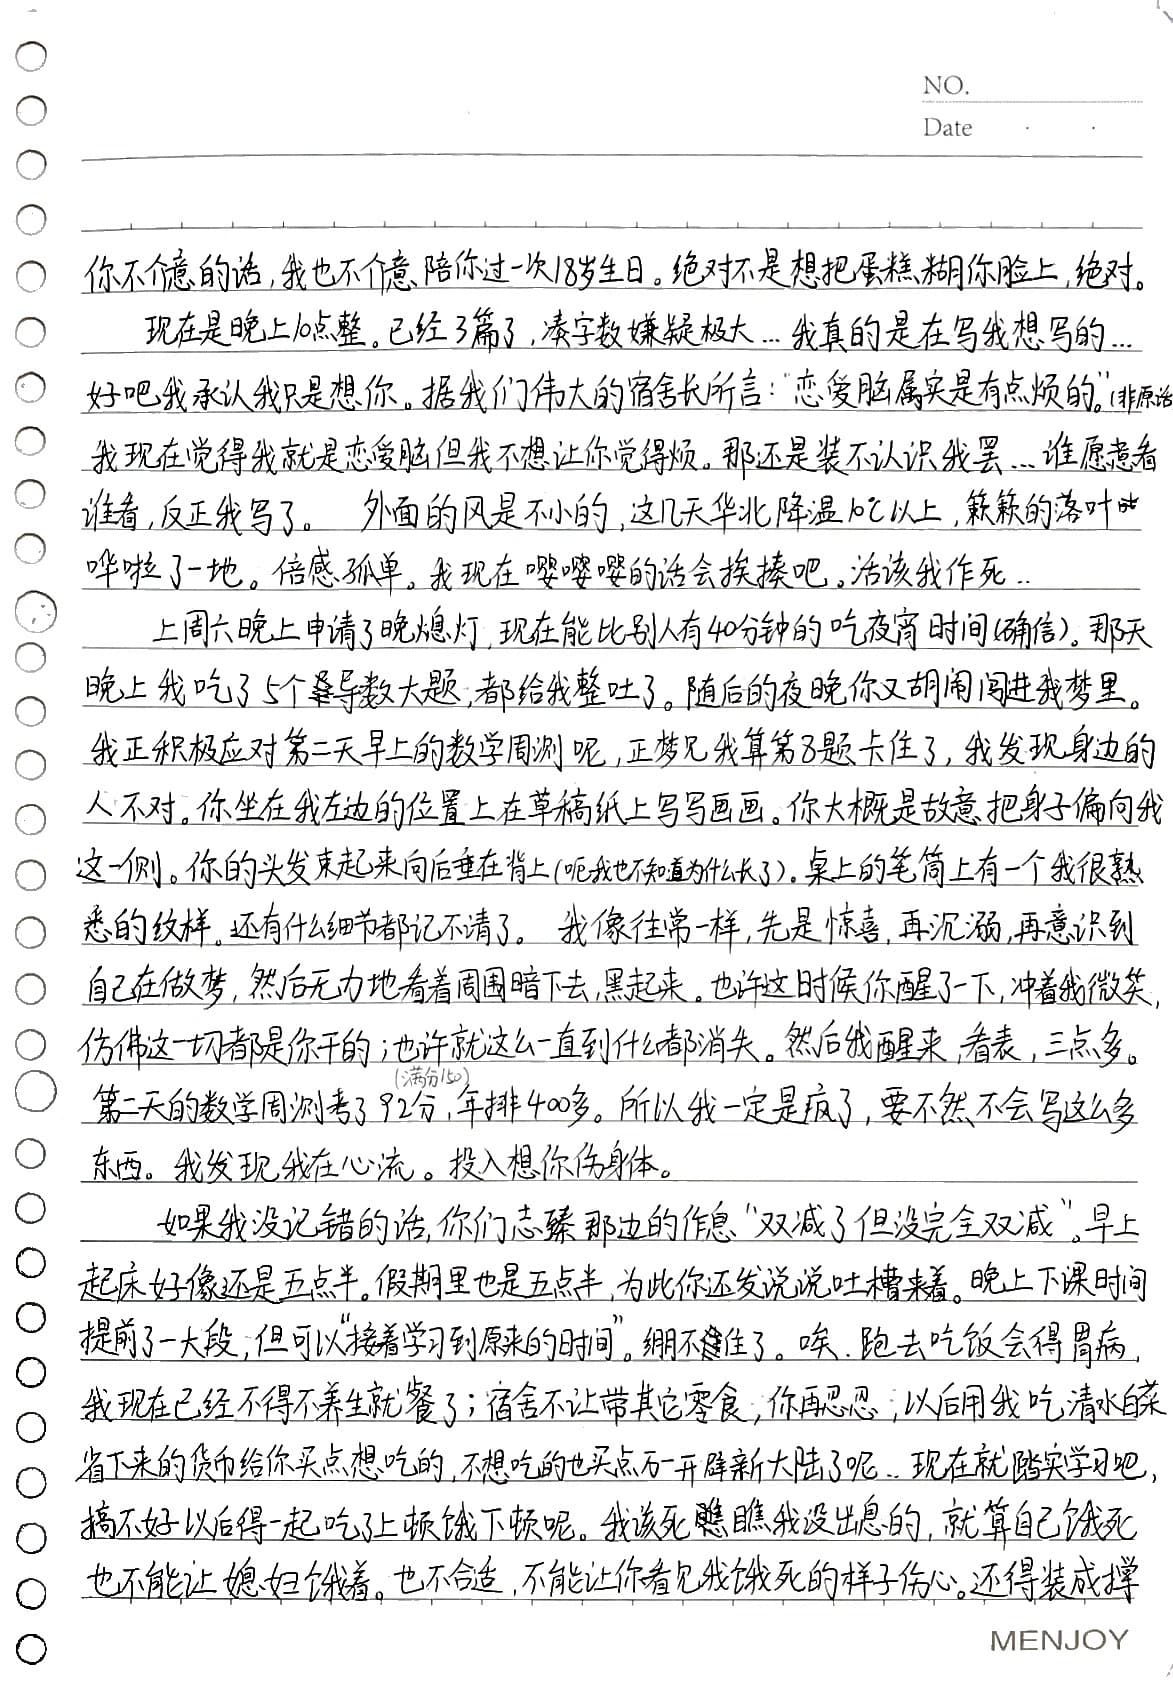 NO.
Date
你不介意的话，我也不介意陪你过一次18岁生日。绝对不是想把蛋糕糊你脸上，绝对。
现在是晚上10点整。已经3篇了，凑字数嫌疑极大…我真的是在写我想写的…
好吧我承认我只是想你。据我们伟大的宿舍长所言：“恋爱脑属实是有点烦的”。(非原话
我现在觉得我就是恋爱脑但我不想让你觉得烦。那还是装不认识我罢…谁愿意看
谁看，反正我写了。 外面的风是不小的，这几天华北降温10℃以上，簌簌的落叶
哗啦了一地。倍感孤单。我现在嘤嘤嘤的话会挨揍吧。活该我作死..
上周六晚上申请了晚熄灯，现在能比别人有40分钟的吃夜宵时间(确信)。那天
晚上我吃了5个导数大题，都给我整吐了。随后的夜晚你又胡闹闯进我梦里。
我正积极应对第二天早上的数学周测呢，正梦见我算第8题卡住了，我发现身边的
人不对。你坐在我左边的位置上在草稿纸上写写画画。你大概是故意把身子偏向我
这一侧。你的头发束起来向后垂在背上(呃我也不知道为什么长了)。桌上的笔筒上有一个我很熟
悉的纹样。还有什么细节都记不清了。 我像往常一样，先是惊喜，再沉溺，再意识到
自己在做梦，然后无力地看着周围暗下去，黑起来。也许这时候你醒了一下，冲着我微笑，
仿佛这一切都是你干的；也许就这么一直到什么都消失。然后我醒来，看表，三点多。
(满分150)
第二天的数学周测考了92分，年排400多。所以我一定是疯了，要不然不会写这么多
东西。我发现我在心流。投入想你伤身体。
如果我没记错的话，你们志臻那边的作息“双减了但没完全双减”。早上
起床好像还是五点半。假期里也是五点半，为此你还发说说吐槽来着。晚上下课时间
提前了一大段，但可以“接着学习到原来的时间”。绷不住了。唉.跑去吃饭会得胃病，
我现在已经不得不养生就餐了；宿舍不让带其它零食，你再忍忍，以后用我吃清水白菜
省下来的货币给你买点想吃的，不想吃的也买点万一开辟新大陆了呢..现在就踏实学习吧，
搞不好以后得一起吃了上顿饿下顿呢。我该死瞧瞧我没出息的，就算自己饿死
也不能让媳妇饿着。也不合适，不能让你看见我饿死的样子伤心。还得装成撑
MENJOY